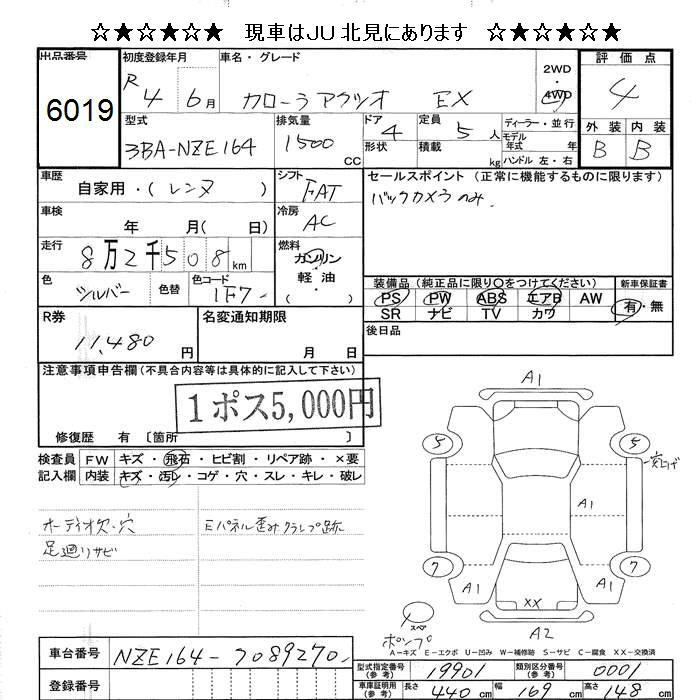 ☆★☆★☆★ 現車はJU北見にあります ☆★☆★☆★
出品番号 初度登録年月 車名・グレード 2WD・4WD 評価点
6019 R4 6月 カローラアクシオ EX 4
型式 排気量 ドア 4 定員 5人 ディーラー・並行 外装 内装
3BA-NZE164 1500cc 形状 積載 kg モデル年式 年式 B B
ハンドル 左・右
車歴 自家用・(レンヌ) シフト FAT セールスポイント (正常に機能するものに限ります)
車検 年 月( 日) 冷房 AC バックカメラのみ.
走行 8万2千508km 燃料 ガソリン・軽・油・( )
色 シルバー 色替 色コード 1F7 装備品 (純正品に限り〇をつけてください) 新車保証書
PS PW ABS エアB AW 有・無
SR ナビ TV カワ
R券 11,480円 名変通知期限 月 日 後日品
注意事項申告欄(不具合内容等は具体的に記入して下さい)
1ポス5,000円
修復歴 有〔箇所 〕
検査員 FW キズ・飛石・ヒビ割・リペア跡・×要
記入欄 内装 キズ・汚レ・コゲ・穴・スレ・キレ・破レ
オーディオ欠・穴 Eパネル歪みクランプ跡
足廻りサビ
A1
5 5
A1
7 7
A1 XX A1
スペ
ポンプ A2
A‐キズ E‐エクボ U‐凹み W‐補修跡 S‐サビ C‐腐食 XX‐交換済
車台番号 NZE164-7089270 型式指定番号(参考) 19901 類別区分番号(参考) 0001
登録番号 車庫証明用(参考) 長さ 440cm 幅 169cm 高さ 148cm